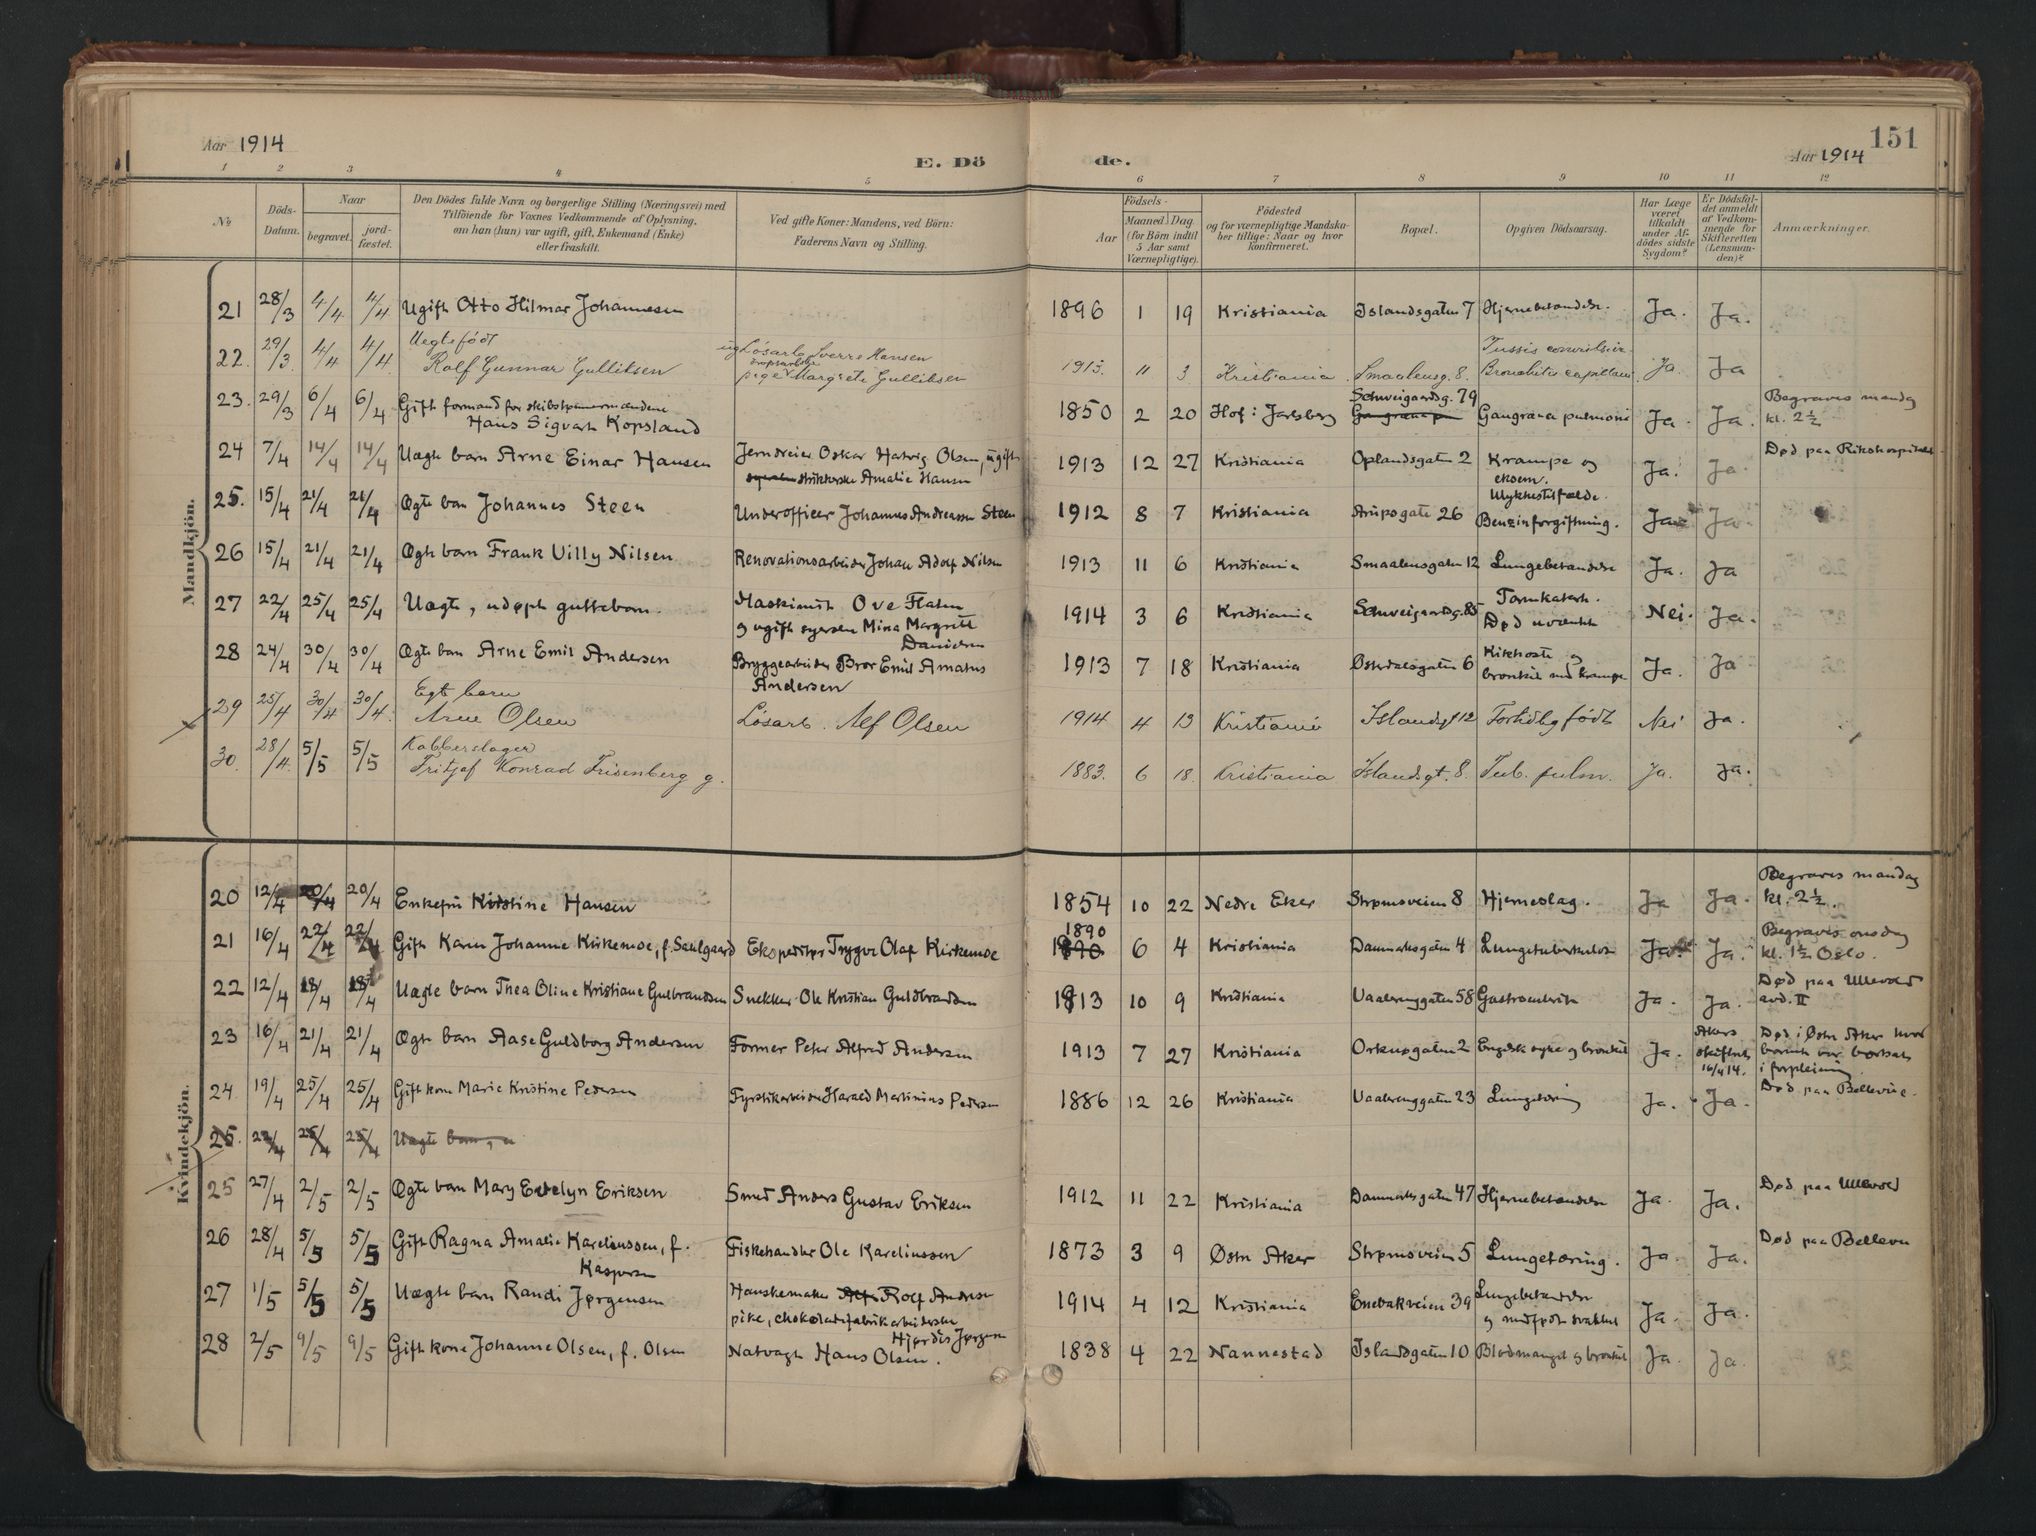 Aar 1914
E. Dö
de.
Aar 1914
151
1 2 3 4 5 6 7 8 9 10 11 12
№
Döds-Datum.
Naar
begravet. jord-fæstet.
Den Dödes fulde Navn og borgerlige Stilling (Næringsvei) med
Tilföiende for Voxnes Vedkommende af Oplysning,
om han (hun) var ugift, gift, Enkemand (Enke)
eller fraskilt.
Ved gifte Koner: Mandens, ved Börn:
Faderens Navn og Stilling.
Födsels-
Aar
Maaned Dag
(for Börn indtil
5 Aar samt
Værnepligtige).
Födested
og for værnepligtige Mandska-
ber tillige: Naar og hvor
konfirmeret.
Bopæl.
Opgiven Dödsaarsag.
Har Læge
været
tilkaldt
under Af-
dödes sidste
Sygdom?
Er Dödsfal-
det anmeldt
af Vedkom-
mende for
Skifteretten
(Lensman-
den)?
Anmærkninger.
Mandkjön.
21 28/3 4/4 4/4 Ugift Otto Hilmar Johannesen 1896 1 19 Kristiania Islandsgaten 7 Hjernebetændelse. Ja. Ja.
22. 29/3 4/4 4/4 Uegtefödt
Rolf Gunnar Gulliksen
Løsarb. Sverre Hansen
pige Margrete Gulliksen 1913. 11 3 Kristiania Smaalensg. 8. Tussis convulsiv.
Bronchitis capillaris Ja. Ja
23. 29/3 6/4 6/4 Gift formand for
Hans Sigvart Kopsland 1850 2 20 Hof i Jarlsberg Schweigaardsg. 79 Gangræna pulmonis Ja. Ja. Begraves mandag
kl. 2½
24 7/4 14/4 14/4 Uægte barn Arne Einar Hansen Jerndreier Oskar Hartvig Olsen, ugift
strikkerske Amalie Hansen 1913 12 27 Kristiania Oplandsgaten 2 Krampe og
eksem. Ja. Ja Død paa Rikshospitalet
25. 15/4 21/4 21/4 Ægte barn Johannes Steen Underofficer Johannes Andreassen Steen 1912 8 7 Kristiania Arupsgate 26 Ulykkestilfælde.
Benzinforgiftning. Ja Ja
26 15/4 21/4 21/4 Ægte barn Frank Villy Nilsen Renovationsarbeider Johan Adolf Nilsen 1913 11 6 Kristiania Smaalensgaten 12 Lungebetændelse Ja. Ja
27 22/4 25/4 25/4 Uægte, udøpt guttebarn. Maskinist Ove Flaten
og ugift syerske Mina Margrete
Danielsen 1914 3 6 Kristiania Schweigaardsg. 85 Tarmkatarrh.
Død uventet Nei. Ja.
28 24/4 30/4 30/4 Ægte barn Arne Emil Andersen Bryggearbeider Bror Emil Amatus
Andersen 1913 7 18 Kristiania Østerdalsgaten 6 Kikhoste og
bronkit med krampe Ja. Ja
29 25/4 30/4 30/4. Egt barn
Arne Olsen Løsarb. Alf Olsen 1914 4 13 Kristiania Islandsgt 12 Fortidlig födt Nei Ja.
30. 28/4. 5/5 5/5 Kobberslager
Fritjof Konrad Frisenberg g. 1883. 6 18. Kristiania Islandsgt. 8. Tub. pulm. Ja. Ja.
Kvindekjön.
20 12/4 20/4 20/4 Enkefru Kirstine Hansen 1854 10 22 Nedre Eker Strømsveien 8 Hjerneslag. Ja Ja. Begraves mandag
kl. 2½.
21 16/4 22/4 22/4 Gift Karen Johanne Kirkemoe, f. Saulgaard Ekspeditør Trygve Olaf Kirkemoe 1890 6 4 Kristiania Danmarksgaten 4 Lungetuberkulose Ja. Ja. Begraves onsdag
kl. 1½ Oslo.
22 12/4 18/4 18/4 Uægte barn Thea Oline Kristiane Gulbrandsen Snekker Ole Kristian Guldbrandsen 1913 10 9 Kristiania Vaalerenggaten 58 Gastroenterit Ja. Ja. Død paa Ullevaal
avd. II
23 16/4 21/4 21/4 Ægte barn Aase Guldborg Andersen Former Peter Alfred Andersen 1913 7 27 Kristiania Orknøgaten 2 Engelsk syke og bronkit Ja. Akers
skifteret
16/4 14. Død i Østre Aker hvor
barnet var bortsat
i forpleining
24. 19/4 25/4 25/4 Gift kone Marie Kristine Pedersen Fyrstikarbeider Harald Martinius Pedersen 1886 12 26 Kristiania Vaalerenggaten 23 Lungetæring Ja. Ja. Død paa Bellevue.
25. 22/4 25/4 25/4 Uægte barn,
25 27/4 2/5 2/5 Ægte barn Mary Evelyn Eriksen Smed Anders Gustav Eriksen 1912 11 22 Kristiania Danmarksgaten 47 Hjernebetændelse Ja. Ja. Død paa Ullevaal
26 28/4 5/5 5/5 Gift Ragna Amalie Kareliussen, f.
Kaspersen Fiskehandler Ole Kareliussen 1873 3 9 Østre Aker Strømsveien 5 Lungetæring. Ja. Ja. Død paa Bellevue
27 1/5 5/5 5/5 Uægte barn Randi Jørgensen Hanskemaker Rolf Andersen
pike, chokoladefabrikarbeiderske
Hjørdis Jørgensen 1914 4 12 Kristiania Enebakveien 39 Lungebetændelse
og medfødt svakhet Ja. Ja.
28 2/5 9/5 9/5 Gift kone Johanne Olsen, f. Olsen Natvagt Hans Olsen. 1838 4 22 Nannestad Islandsgaten 10 Blodmangel og bronkit Ja. Ja.